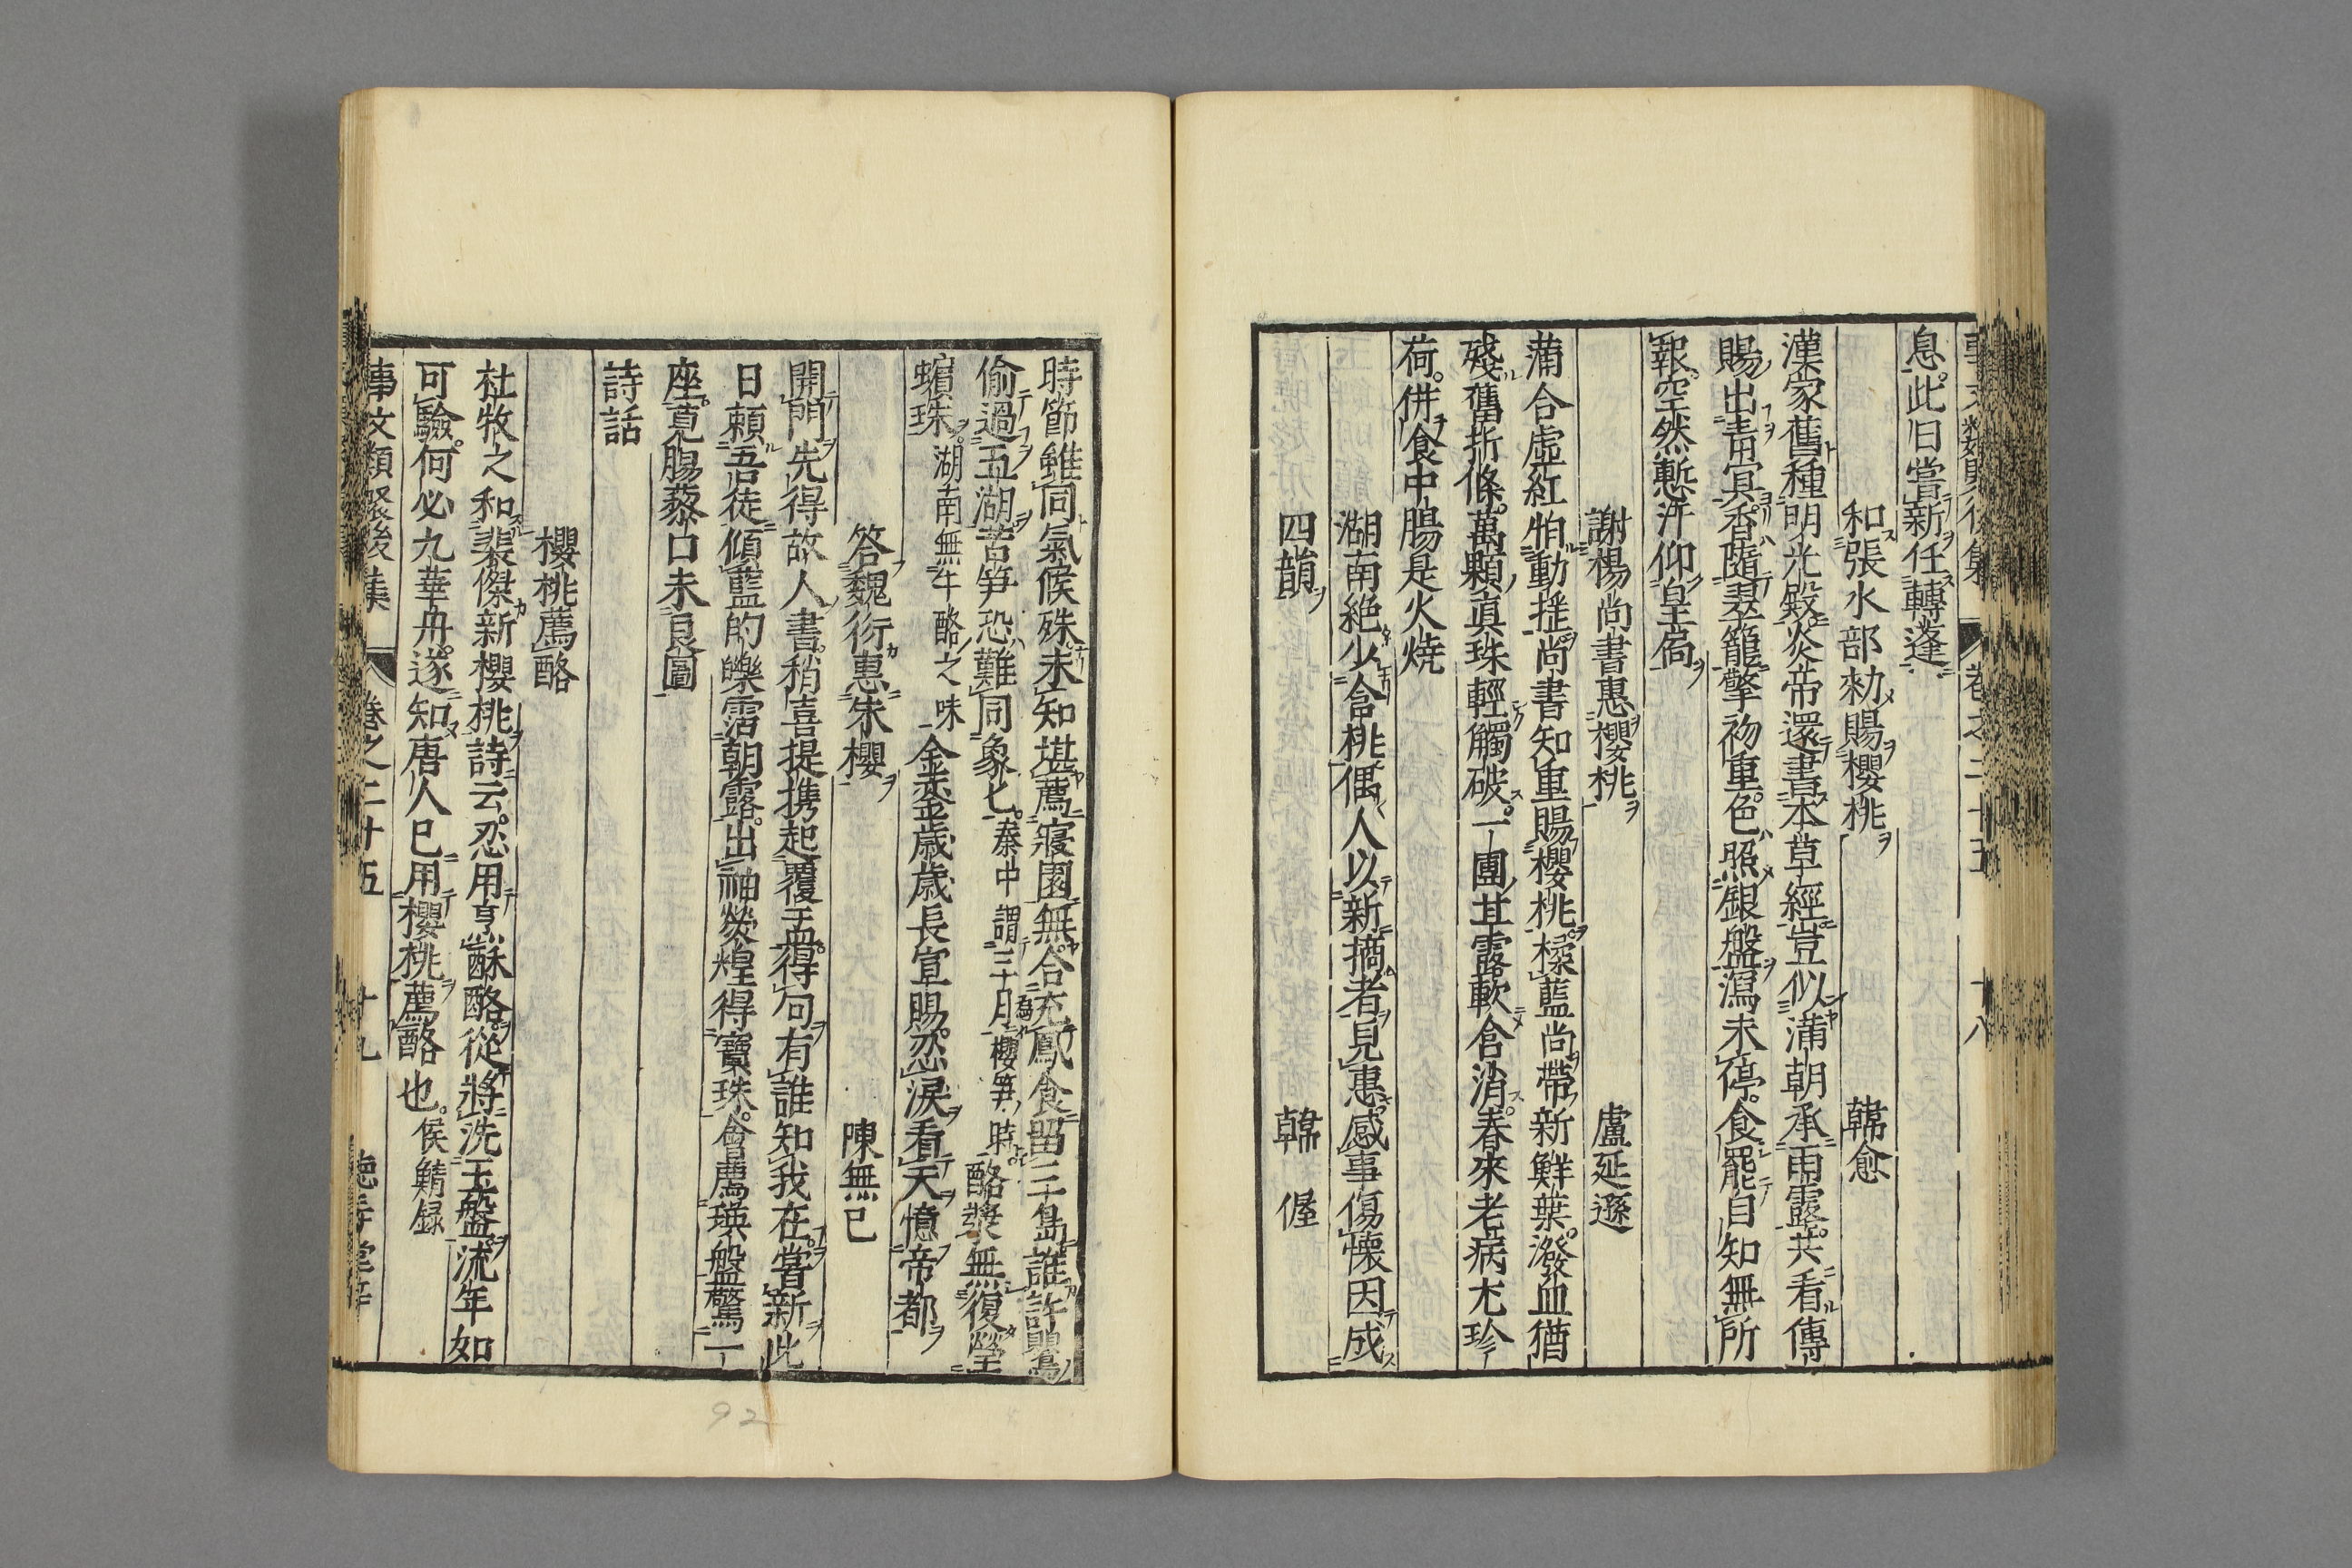 息。此日嘗新任轉蓬
和張水部勑賜櫻桃 韓愈
漢家舊種明光殿。炎帝還書本草經。豈似滿朝承雨露。共看傳
賜出青冥。香隨翠籠擎初重。色照銀盤瀉未停。食罷自知無所
報。空然慙汗仰皇扃
謝楊尚書惠櫻桃 盧延遜
滿合虛紅怕動揺。尚書知重賜櫻桃。檪藍尚帶新鮮葉。潑血猶
殘舊折條。萬顆真珠輕觸破。一團甘露軟含消。春來老病尤珍
荷。併食中腸是火燒
湖南絶少含桃。偶人以新摘者見惠。感事傷懷因成
四韻 韓偓
時節雖同氣候殊。未知堪薦寢園無。合充鳳食留三島。誰許鸎
偷過五湖。苦笋恐難同象匕。秦中謂三月為櫻笋時。酪漿無復瑩
蠙珠。湖南無牛酪之味 金鑾歳歳長宣賜。忍淚看天憶帝都
答魏衍惠朱櫻 陳無已
開門先得故人書。稍喜提携起覆盂。得句有誰知我在。嘗新此
日頼吾徒。傾藍的皪霑朝露。出袖熒煌得寶珠。會薦瑛盤驚一
座。莧腸藜口未良圖
詩話
櫻桃薦酪
杜牧之和裴傑新櫻桃詩云。忍用烹酥酪。從將洗玉盤。流年如
可驗。何必九華丹。遂知唐人已用櫻桃薦酪也。侯鯖録
事文類聚後集 卷之二十五 十九